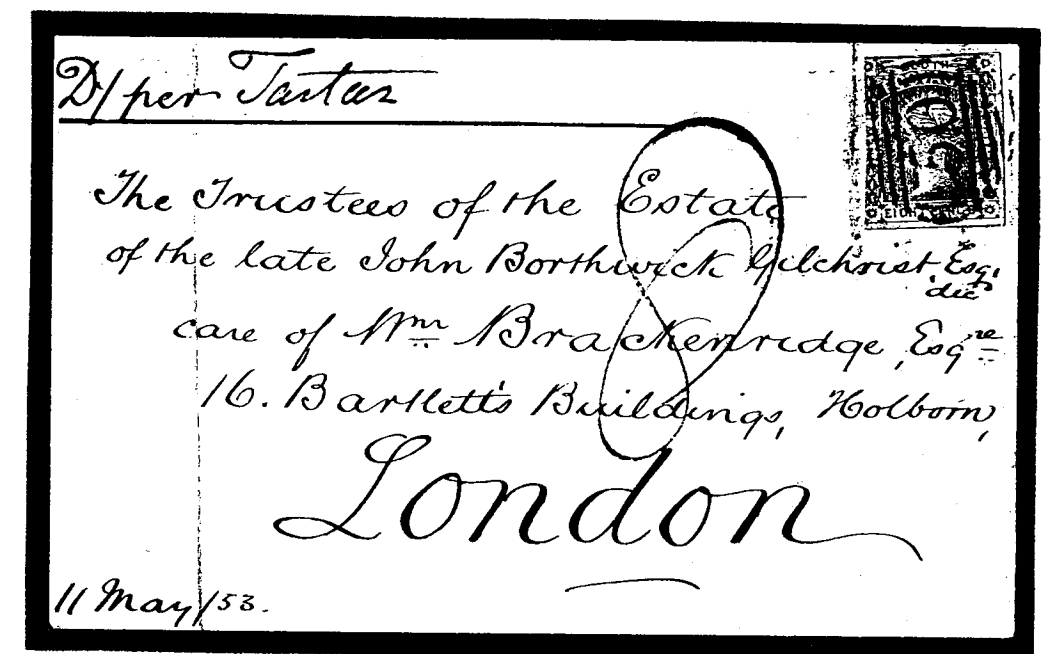 D/ per Tartar
The Trustees of the Estate
of the late John Borthwick Gilchrist Esq.
dec
care of Wm Brackenridge, Esqre
16. Bartlett's Buildings, Holborn,
London
11 May/53.
8
SOUTH
EIGHT PENCE